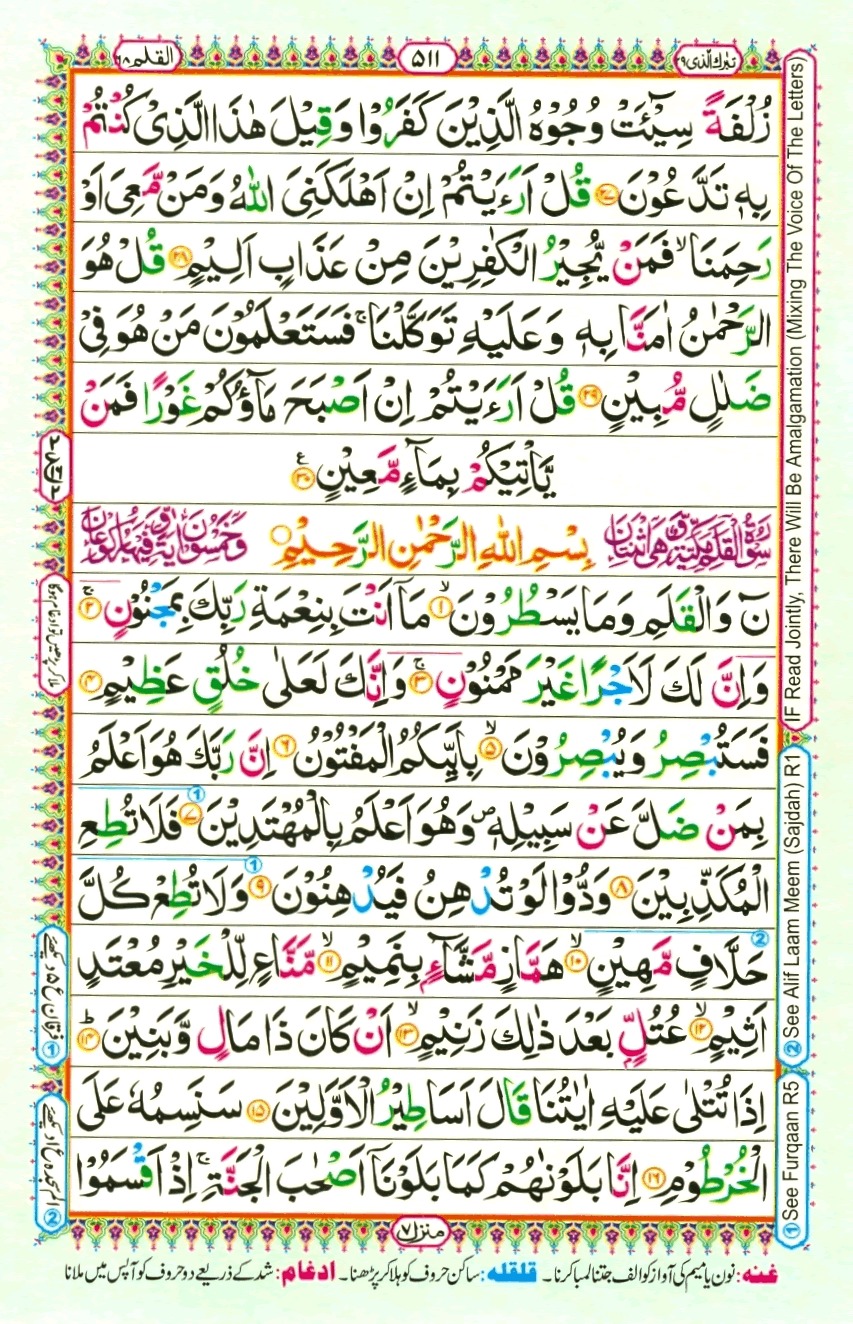 تبٰرک الّذی ٢٩
۵۱۱
القلم ٦٨
زُلْفَةً سِيْٓئَتْ وُجُوْهُ الَّذِيْنَ كَفَرُوْا وَقِيْلَ هٰذَا الَّذِىْ كُنْتُمْ
بِهٖ تَدَّعُوْنَ ﴿٢٧﴾ قُلْ اَرَءَيْتُمْ اِنْ اَهْلَكَنِىَ اللّٰهُ وَمَنْ مَّعِىَ اَوْ
رَحِمَنَا ۙ فَمَنْ يُّجِيْرُ الْكٰفِرِيْنَ مِنْ عَذَابٍ اَلِيْمٍ ﴿٢٨﴾ قُلْ هُوَ
الرَّحْمٰنُ اٰمَنَّا بِهٖ وَعَلَيْهِ تَوَكَّلْنَا ۚ فَسَتَعْلَمُوْنَ مَنْ هُوَ فِىْ
ضَلٰلٍ مُّبِيْنٍ ﴿٢٩﴾ قُلْ اَرَءَيْتُمْ اِنْ اَصْبَحَ مَآؤُكُمْ غَوْرًا فَمَنْ
يَّاْتِيْكُمْ بِمَآءٍ مَّعِيْنٍ ﴿٣٠﴾ ع
سُوْرَةُ الْقَلَمِ مَكِّيَّةٌ وَّهِىَ اثْنَتَانِ بِسْمِ اللّٰهِ الرَّحْمٰنِ الرَّحِيْمِ وَخَمْسُوْنَ اٰيَةً وَّفِيْهَا رُكُوْعَانِ
نٓ وَالْقَلَمِ وَمَا يَسْطُرُوْنَ ۙ ﴿١﴾ مَآ اَنْتَ بِنِعْمَةِ رَبِّكَ بِمَجْنُوْنٍ ۚ ﴿٢﴾
وَاِنَّ لَكَ لَاَجْرًا غَيْرَ مَمْنُوْنٍ ۚ ﴿٣﴾ وَاِنَّكَ لَعَلٰى خُلُقٍ عَظِيْمٍ ﴿٤﴾
فَسَتُبْصِرُ وَيُبْصِرُوْنَ ۙ ﴿٥﴾ بِاَيِّكُمُ الْمَفْتُوْنُ ﴿٦﴾ اِنَّ رَبَّكَ هُوَ اَعْلَمُ
بِمَنْ ضَلَّ عَنْ سَبِيْلِهٖ ۖ وَهُوَ اَعْلَمُ بِالْمُهْتَدِيْنَ ﴿٧﴾ فَلَا تُطِعِ
الْمُكَذِّبِيْنَ ﴿٨﴾ وَدُّوْا لَوْ تُدْهِنُ فَيُدْهِنُوْنَ ﴿٩﴾ وَلَا تُطِعْ كُلَّ
حَلَّافٍ مَّهِيْنٍ ۙ ﴿١٠﴾ هَمَّازٍ مَّشَّآءٍ بِنَمِيْمٍ ۙ ﴿١١﴾ مَّنَّاعٍ لِّلْخَيْرِ مُعْتَدٍ
اَثِيْمٍ ۙ ﴿١٢﴾ عُتُلٍّ بَعْدَ ذٰلِكَ زَنِيْمٍ ۙ ﴿١٣﴾ اَنْ كَانَ ذَا مَالٍ وَّبَنِيْنَ ؕ ﴿١٤﴾
اِذَا تُتْلٰى عَلَيْهِ اٰيٰتُنَا قَالَ اَسَاطِيْرُ الْاَوَّلِيْنَ ﴿١٥﴾ سَنَسِمُهٗ عَلَى
الْخُرْطُوْمِ ﴿١٦﴾ اِنَّا بَلَوْنٰهُمْ كَمَا بَلَوْنَآ اَصْحٰبَ الْجَنَّةِ ۚ اِذْ اَقْسَمُوْا
منزل ٧
غنه: نون یا میم کی آواز کو الف جتنا لمبا کرنا۔ قلقله: ساکن حروف کو ہلا کر پڑھنا۔ ادغام: شد کے ذریعے دو حروف کو آپس میں ملانا
IF Read Jointly, There Will Be Amalgamation (Mixing The Voice Of The Letters)
② See Alif Laam Meem (Sajdah) R1
① See Furqaan R5
ملا کر پڑھیں تو ادغام ہوگا
① فرقان ع ۵ دیکھئے
② الم سجدہ ع ۱ دیکھئے